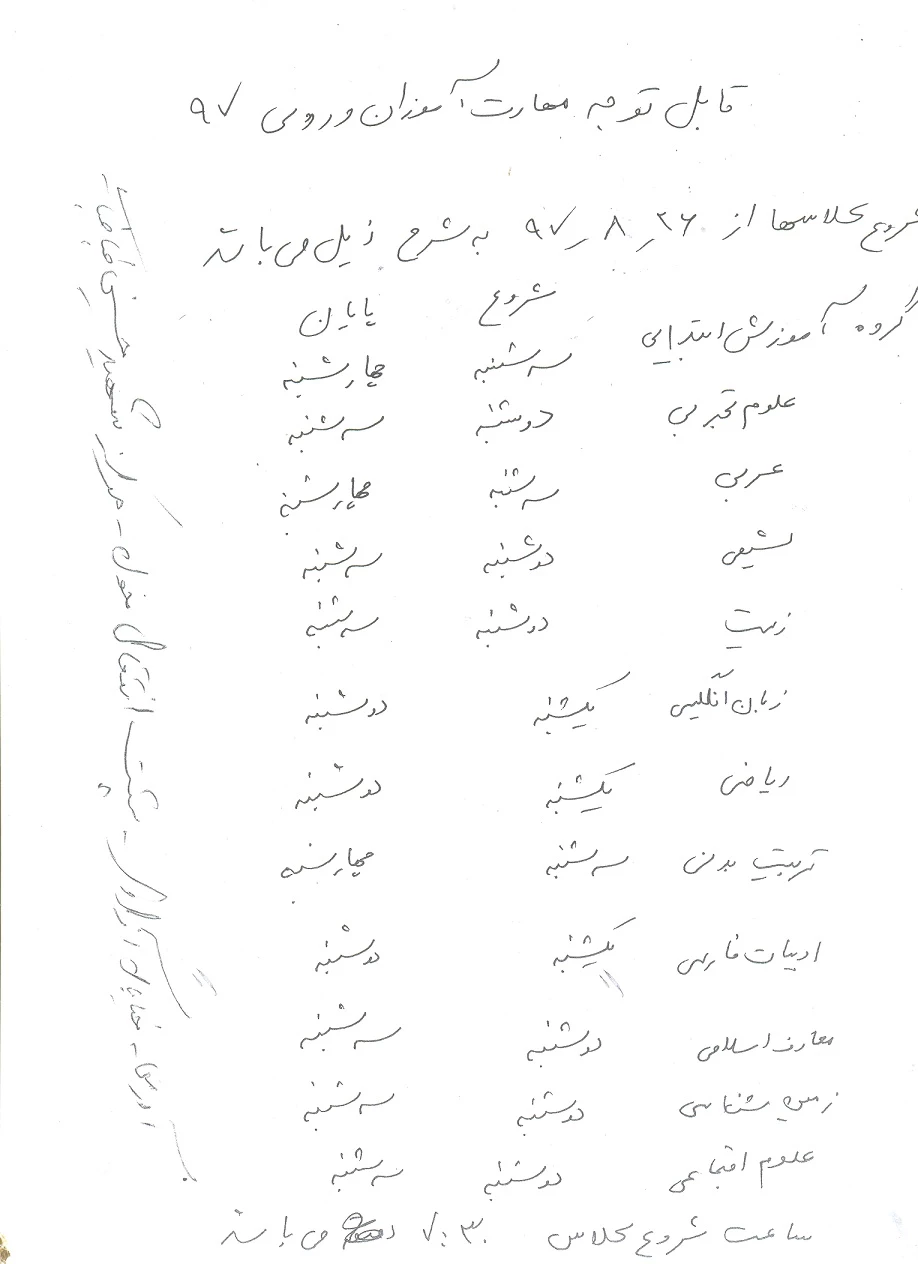 قابل توجه مهارت آموزان ورودی ۹۷
شروع کلاسها از ۲۶ر۸ر۹۷ به شرح ذیل می باشد
شروع پایان
گروه آموزش ابتدایی سه شنبه چهارشنبه
علوم تجربی دوشنبه سه شنبه
عربی سه شنبه چهارشنبه
شیمی دوشنبه سه شنبه
زیست دوشنبه سه شنبه
زبان انگلیسی یکشنبه دوشنبه
ریاضی یکشنبه دوشنبه
تربیت بدنی سه شنبه چهارشنبه
ادبیات فارسی یکشنبه دوشنبه
معارف اسلامی دوشنبه سه شنبه
زمین شناسی دوشنبه سه شنبه
علوم اجتماعی دوشنبه سه شنبه
ساعت شروع کلاس ۷:۳۰ می باشد
آدرس - خیابان - پشت انتقال خون - مرکز شهید